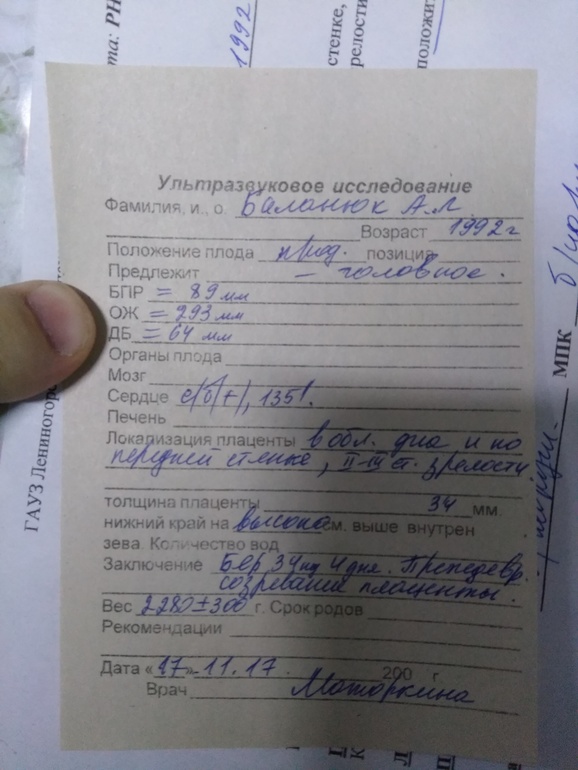 та: РН
1992
стенке,
релости
положи
Ультразвуковое исследование
Фамилия, и., о. Баланюк А.Л
Возраст 1992 г
Положение плода прод. позиция
Предлежит – головное.
БПР = 89 мм
ОЖ = 293 мм
ДБ = 64 мм
Органы плода
Мозг
Сердце с/б(+), 135'.
Печень
Локализация плаценты в обл. дна и по
передней стенке, II-III ст. зрелости
толщина плаценты 34 мм.
нижний край на высоко см. выше внутрен
зева. Количество вод
Заключение Бер. 34 нед 4 дня. Преждевр.
созревание плаценты.
Вес 2280±300 г. Срок родов
Рекомендации
Дата «17» 11.17. 200 г.
Врач Моторкина
ГАУЗ Лениногор
МПК